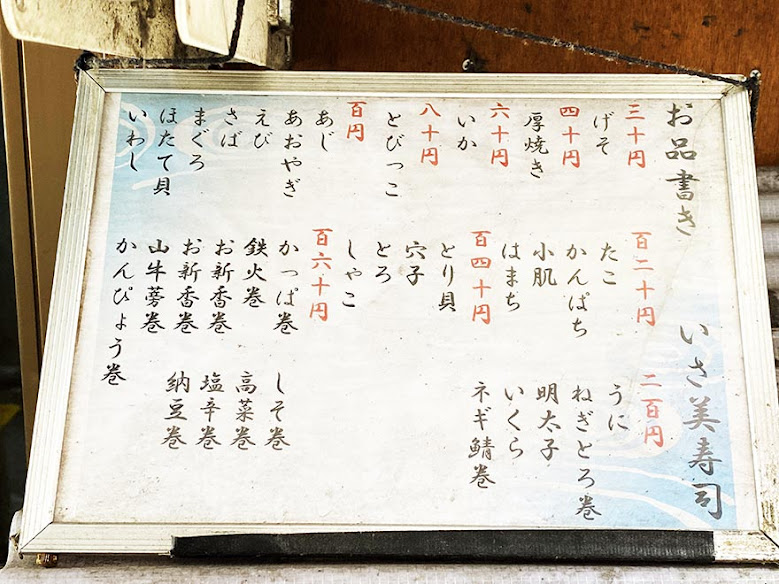 お品書き　いさ美寿司
三十円
げそ
四十円
厚焼き
六十円
いか
八十円
とびっこ
百円
あじ
あおやぎ
えび
さば
まぐろ
ほたて貝
いわし
百二十円
たこ
かんぱち
小肌
はまち
百四十円
とり貝
穴子
とろ
しゃこ
百六十円
かっぱ巻
鉄火巻
お新香巻
お新香巻
山牛蒡巻
かんぴょう巻
しそ巻
高菜巻
塩辛巻
納豆巻
二百円
うに
ねぎとろ巻
明太子
いくら
ネギ鯖巻